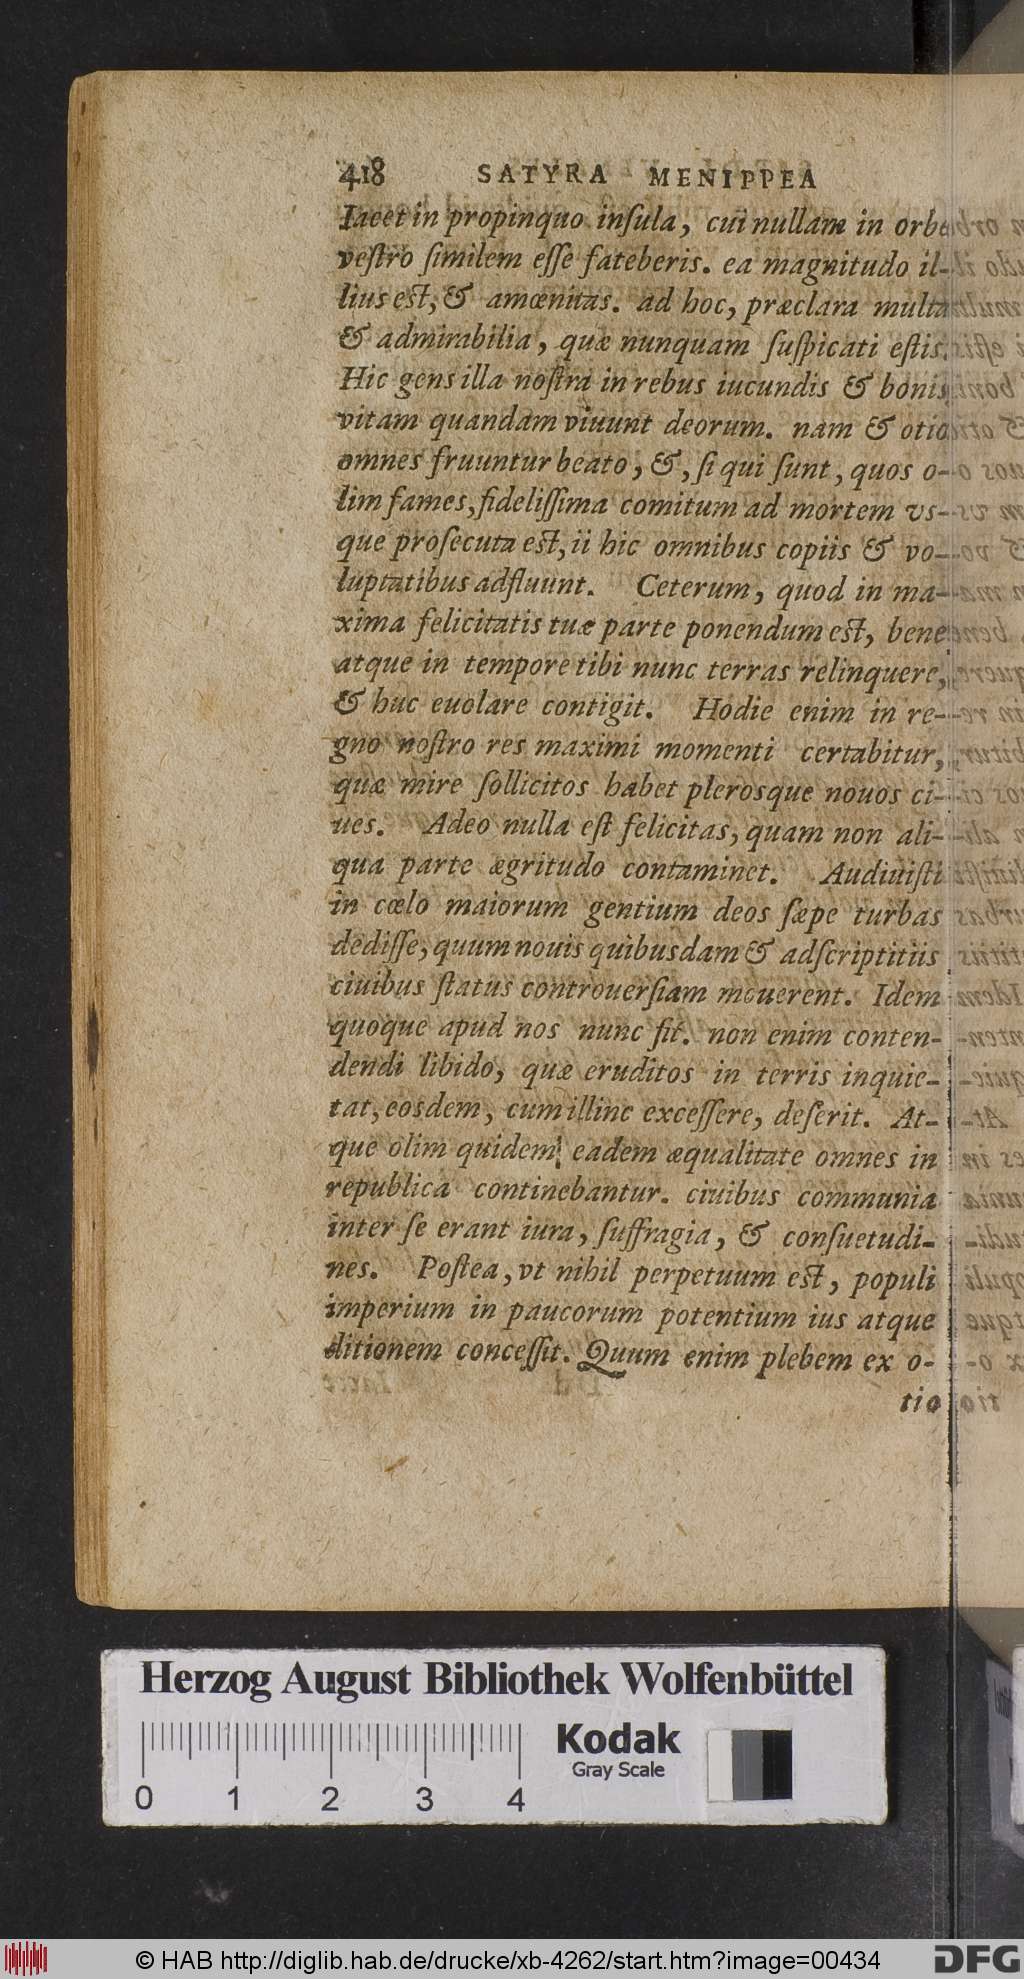 418 SATYRA MENIPPEA
Iacet in propinquo inſula, cui nullam in orbe
veſtro ſimilem eſſe fateberis. ea magnitudo il-
lius eſt, & amœnitas. ad hoc, præclara multa
& admirabilia, quæ nunquam ſuſpicati eſtis.
Hic gens illa noſtra in rebus iucundis & bonis
vitam quandam viuunt deorum. nam & otio
omnes fruuntur beato, &, ſi qui ſunt, quos o-
lim fames, fideliſſima comitum ad mortem vs-
que proſecuta eſt, ii hic omnibus copiis & vo-
luptatibus adfluunt. Ceterum, quod in ma-
xima felicitatis tuæ parte ponendum eſt, bene
atque in tempore tibi nunc terras relinquere,
& huc euolare contigit. Hodie enim in re-
gno noſtro res maximi momenti certabitur,
quæ mire ſollicitos habet plerosque nouos ci-
ues. Adeo nulla eſt felicitas, quam non ali-
qua parte ægritudo contaminet. Audiuiſti
in cœlo maiorum gentium deos ſæpe turbas
dediſſe, quum nouis quibusdam & adſcriptitiis
ciuibus ſtatus controuerſiam mouerent. Idem
quoque apud nos nunc fit. non enim conten-
dendi libido, quæ eruditos in terris inquie-
tat, eosdem, cum illinc exceſſere, deſerit. At-
que olim quidem eadem æqualitate omnes in
republica continebantur. ciuibus communia
inter ſe erant iura, ſuffragia, & conſuetudi-
nes. Poſtea, vt nihil perpetuum eſt, populi
imperium in paucorum potentium ius atque
ditionem conceſſit. Quum enim plebem ex o-
tio
Herzog August Bibliothek Wolfenbüttel
Kodak
Gray Scale
0 1 2 3 4
© HAB http://diglib.hab.de/drucke/xb-4262/start.htm?image=00434
DFG